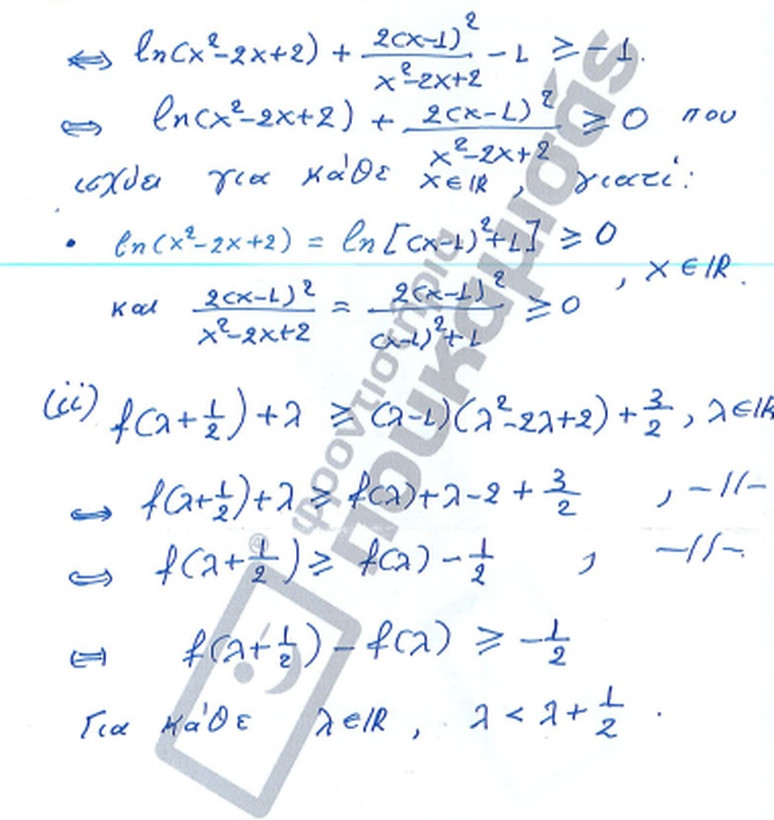 ⇔ ln(x²-2x+2) + 2(x-1)²/(x²-2x+2) - 1 ≥ -1.
⇔ ln(x²-2x+2) + 2(x-1)²/(x²-2x+2) ≥ 0 που
ισχύει για κάθε x∈ℝ, γιατί:
• ln(x²-2x+2) = ln[(x-1)²+1] ≥ 0
, x∈ℝ.
και 2(x-1)²/(x²-2x+2) = 2(x-1)²/((x-1)²+1) ≥ 0
(ii) f(λ+1/2)+λ ≥ (λ-1)(λ²-2λ+2)+3/2, λ∈ℝ
⇔ f(λ+1/2)+λ ≥ f(λ)+λ-2+3/2 , -//-
⇔ f(λ+1/2) ≥ f(λ)-1/2 , -//-.
⇔ f(λ+1/2) - f(λ) ≥ -1/2
Για κάθε λ∈ℝ, λ < λ+1/2.
φροντιστήρια
πουκαμισάς
®